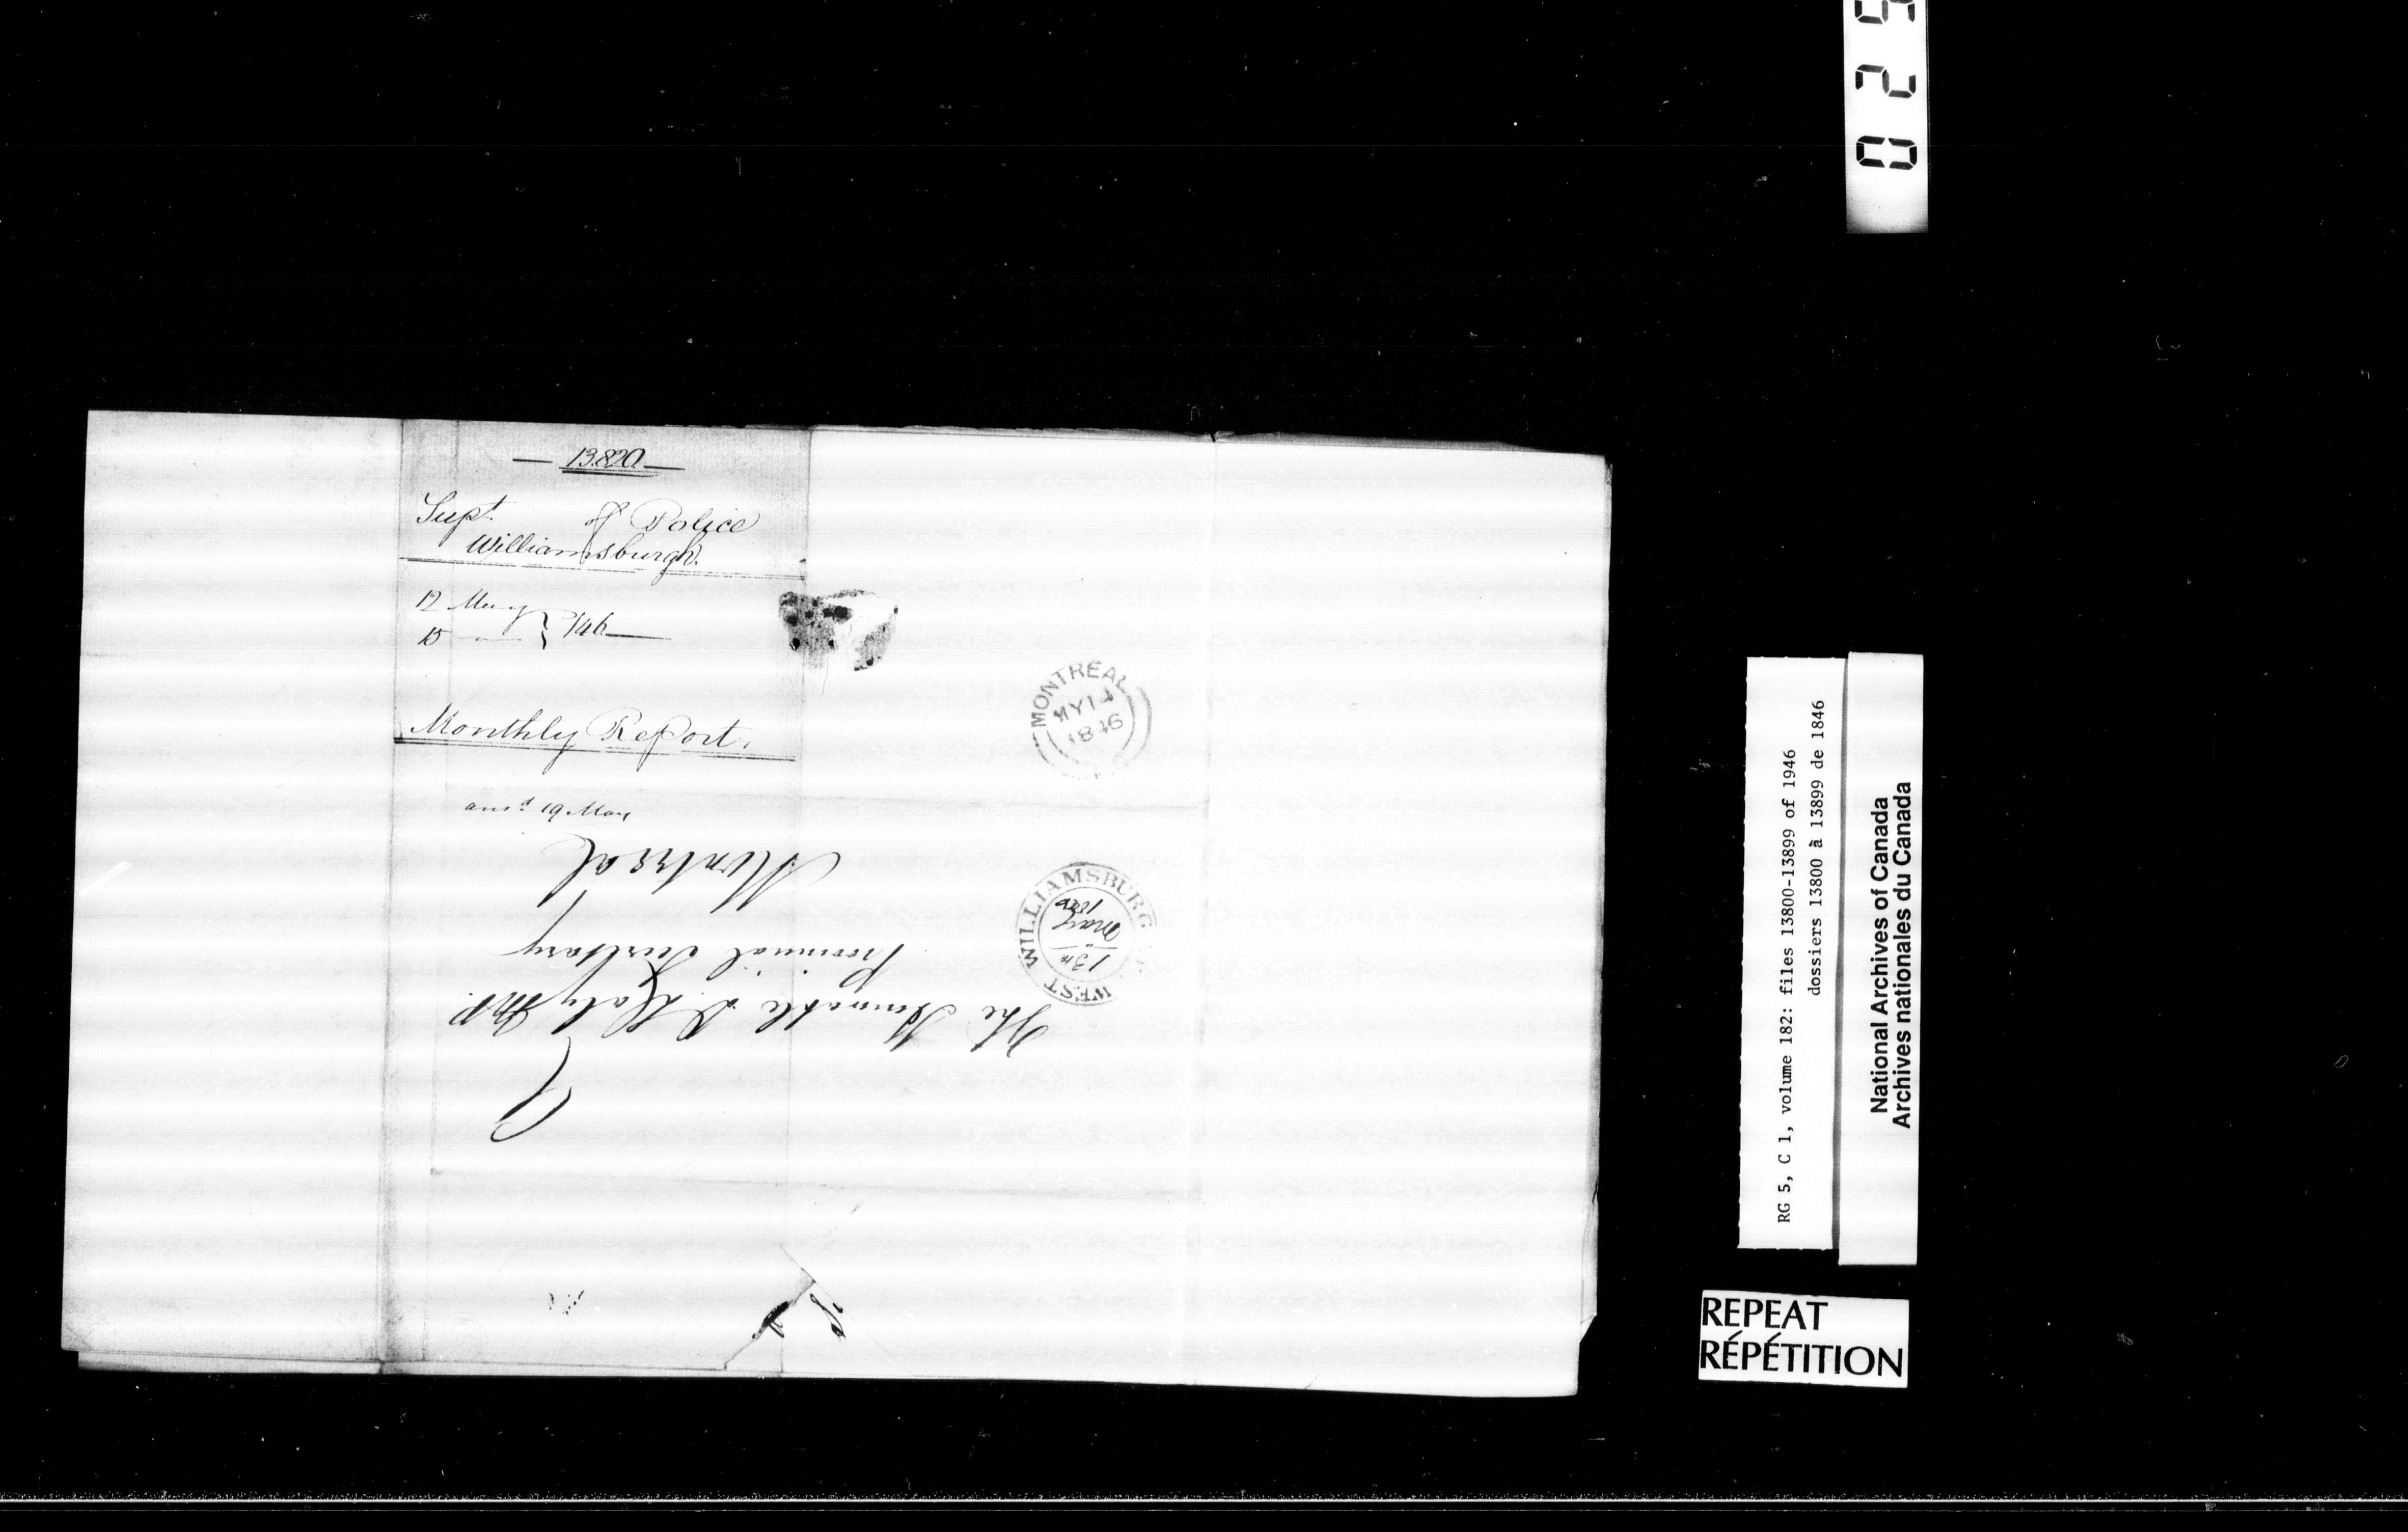 — 13.820 —
Supt. of Police
Williamsburgh.
12 May } /46
15 — }
Monthly Report.
ansd 19 May
The Honorable D. Daly M.P.P.
Provincial Secretary
Montreal
MONTREAL
MY 14
1846
WILLIAMSBURG WEST
13th
May
1846
RG 5, C 1, volume 182: files 13800-13899 of 1946
dossiers 13800 à 13899 de 1846
National Archives of Canada
Archives nationales du Canada
REPEAT
RÉPÉTITION